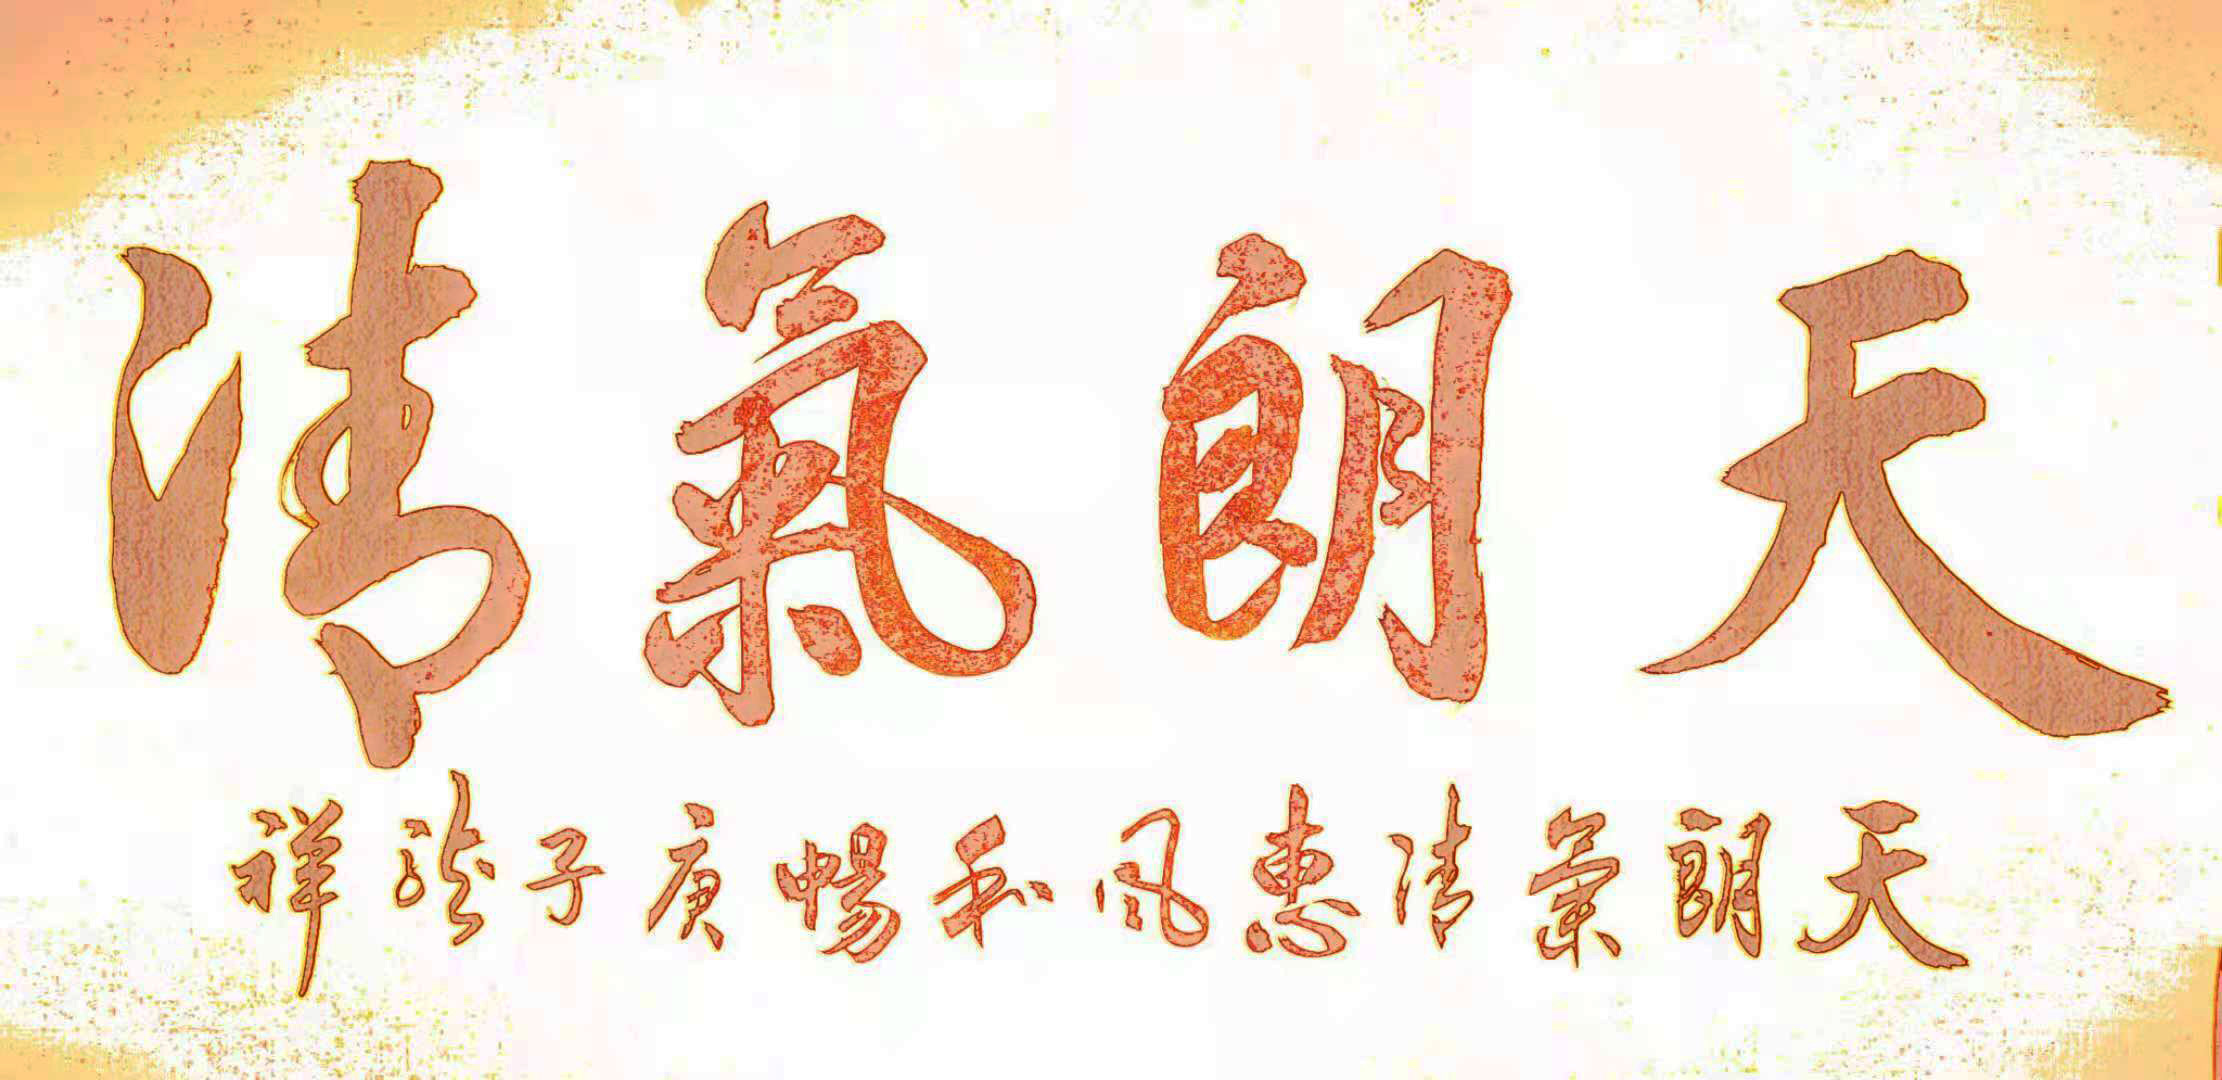 天朗氣清
天朗氣清惠風和暢庚子 祥